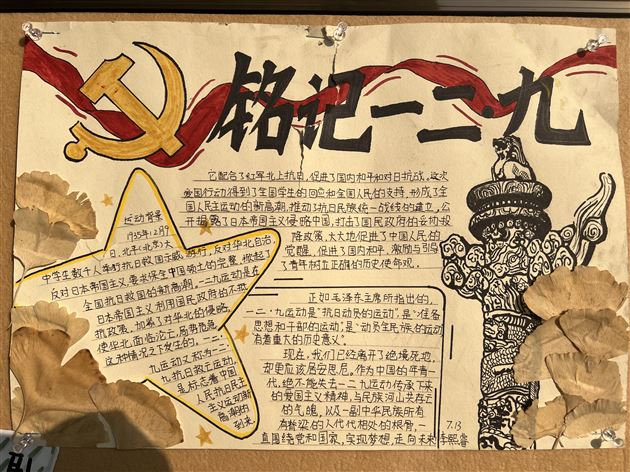 铭记一二·九
它配合了红军北上抗日,促进了国内和平和对日抗战,这次
爱国行动得到了全国学生的回应和全国人民的支持,形成了全
国人民主运动的新高潮,推动了抗日民族统一战线的建立,公
开揭露了日本帝国主义侵略中国,打击了国民政府的妥协投
降政策,大大地促进了中国人民的
觉醒,促进了国内和平,激励与引导
了青年树立正确的历史使命观,
运动背景
1935年12月9
日,北平(北京)大
中学生数千人举行抗日救国示威游行,反对华北自治,
反对日本帝国主义,要求保全中国领土的完整,掀起了
全国抗日救国的新高潮,一二九运动是在
日本帝国主义利用国民政府的不抵
抗政策,加紧了对华北的侵略,
使华北面临沦亡局势危急
这种情况之下发生的。一二·
九运动又称为一二·
九抗日救亡运动,
是标志着中国
人民抗日民主
主义运动新
高潮的
到来
正如毛泽东主席所指出的,
一二·九运动是“抗日动员的运动”,是“准备
思想和干部的运动”,是“动员全民族的运动
有着重大的历史意义”。
现在,我们已经离开了绝境死地,
却更应该居安思危。作为中国的年青一
代,绝不能失去一二九运动传承下来
的爱国主义精神,与民族河山共存亡
的气魄,以一副中华民族所有
有脊梁的人代代相处的根骨,一
直围绕党和国家,实现梦想,走向未来
7.13
李熙睿